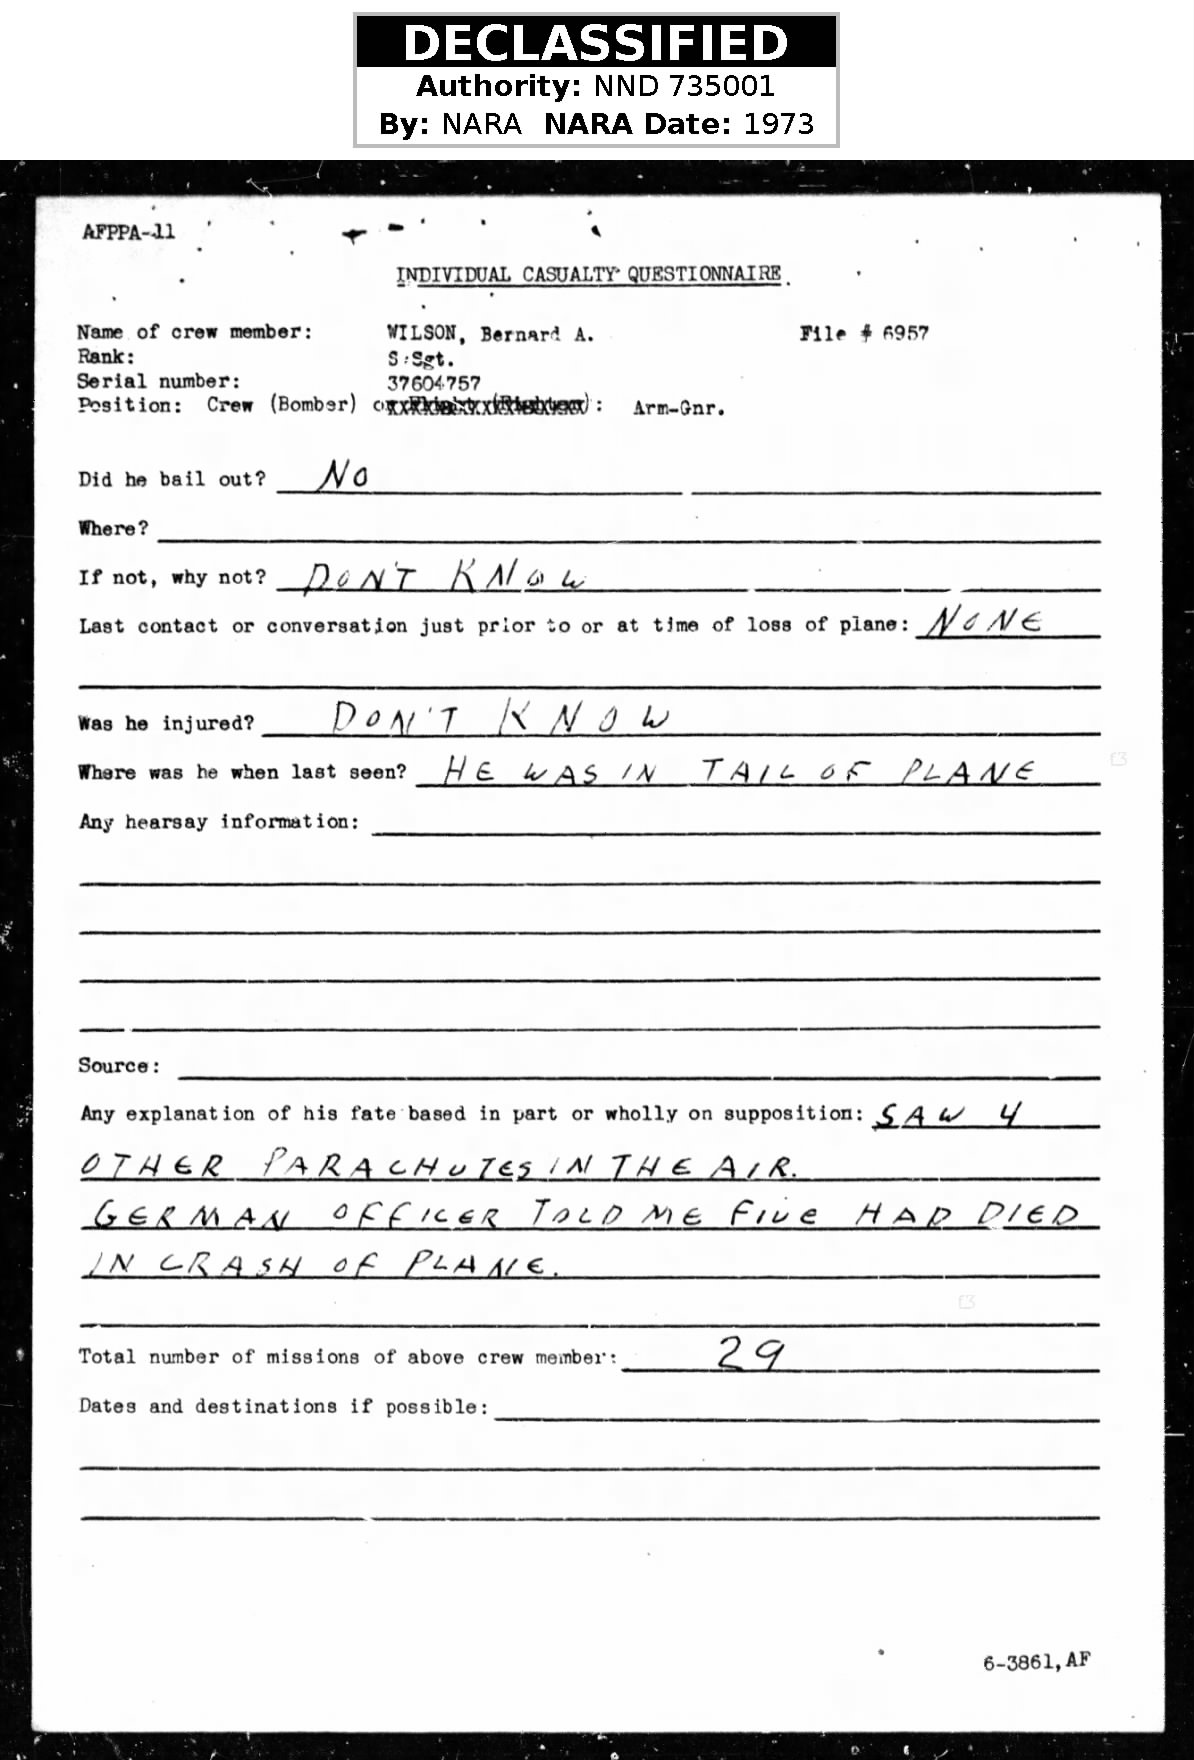 DECLASSIFIED
Authority: NND 735001
By: NARA NARA Date: 1973
AFPPA-11
INDIVIDUAL CASUALTY QUESTIONNAIRE
Name of crew member: WILSON, Bernard A. File # 6957
Rank: S/Sgt.
Serial number: 37604757
Position: Crew (Bomber) : Arm-Gnr.
Did he bail out? NO
Where?
If not, why not? DON'T KNOW
Last contact or conversation just prior to or at time of loss of plane: NONE
Was he injured? DON'T KNOW
Where was he when last seen? HE WAS IN TAIL OF PLANE
Any hearsay information:
Source:
Any explanation of his fate based in part or wholly on supposition: SAW 4
OTHER PARACHUTES IN THE AIR.
GERMAN OFFICER TOLD ME FIVE HAD DIED
IN CRASH OF PLANE.
Total number of missions of above crew member: 29
Dates and destinations if possible:
6-3861, AF